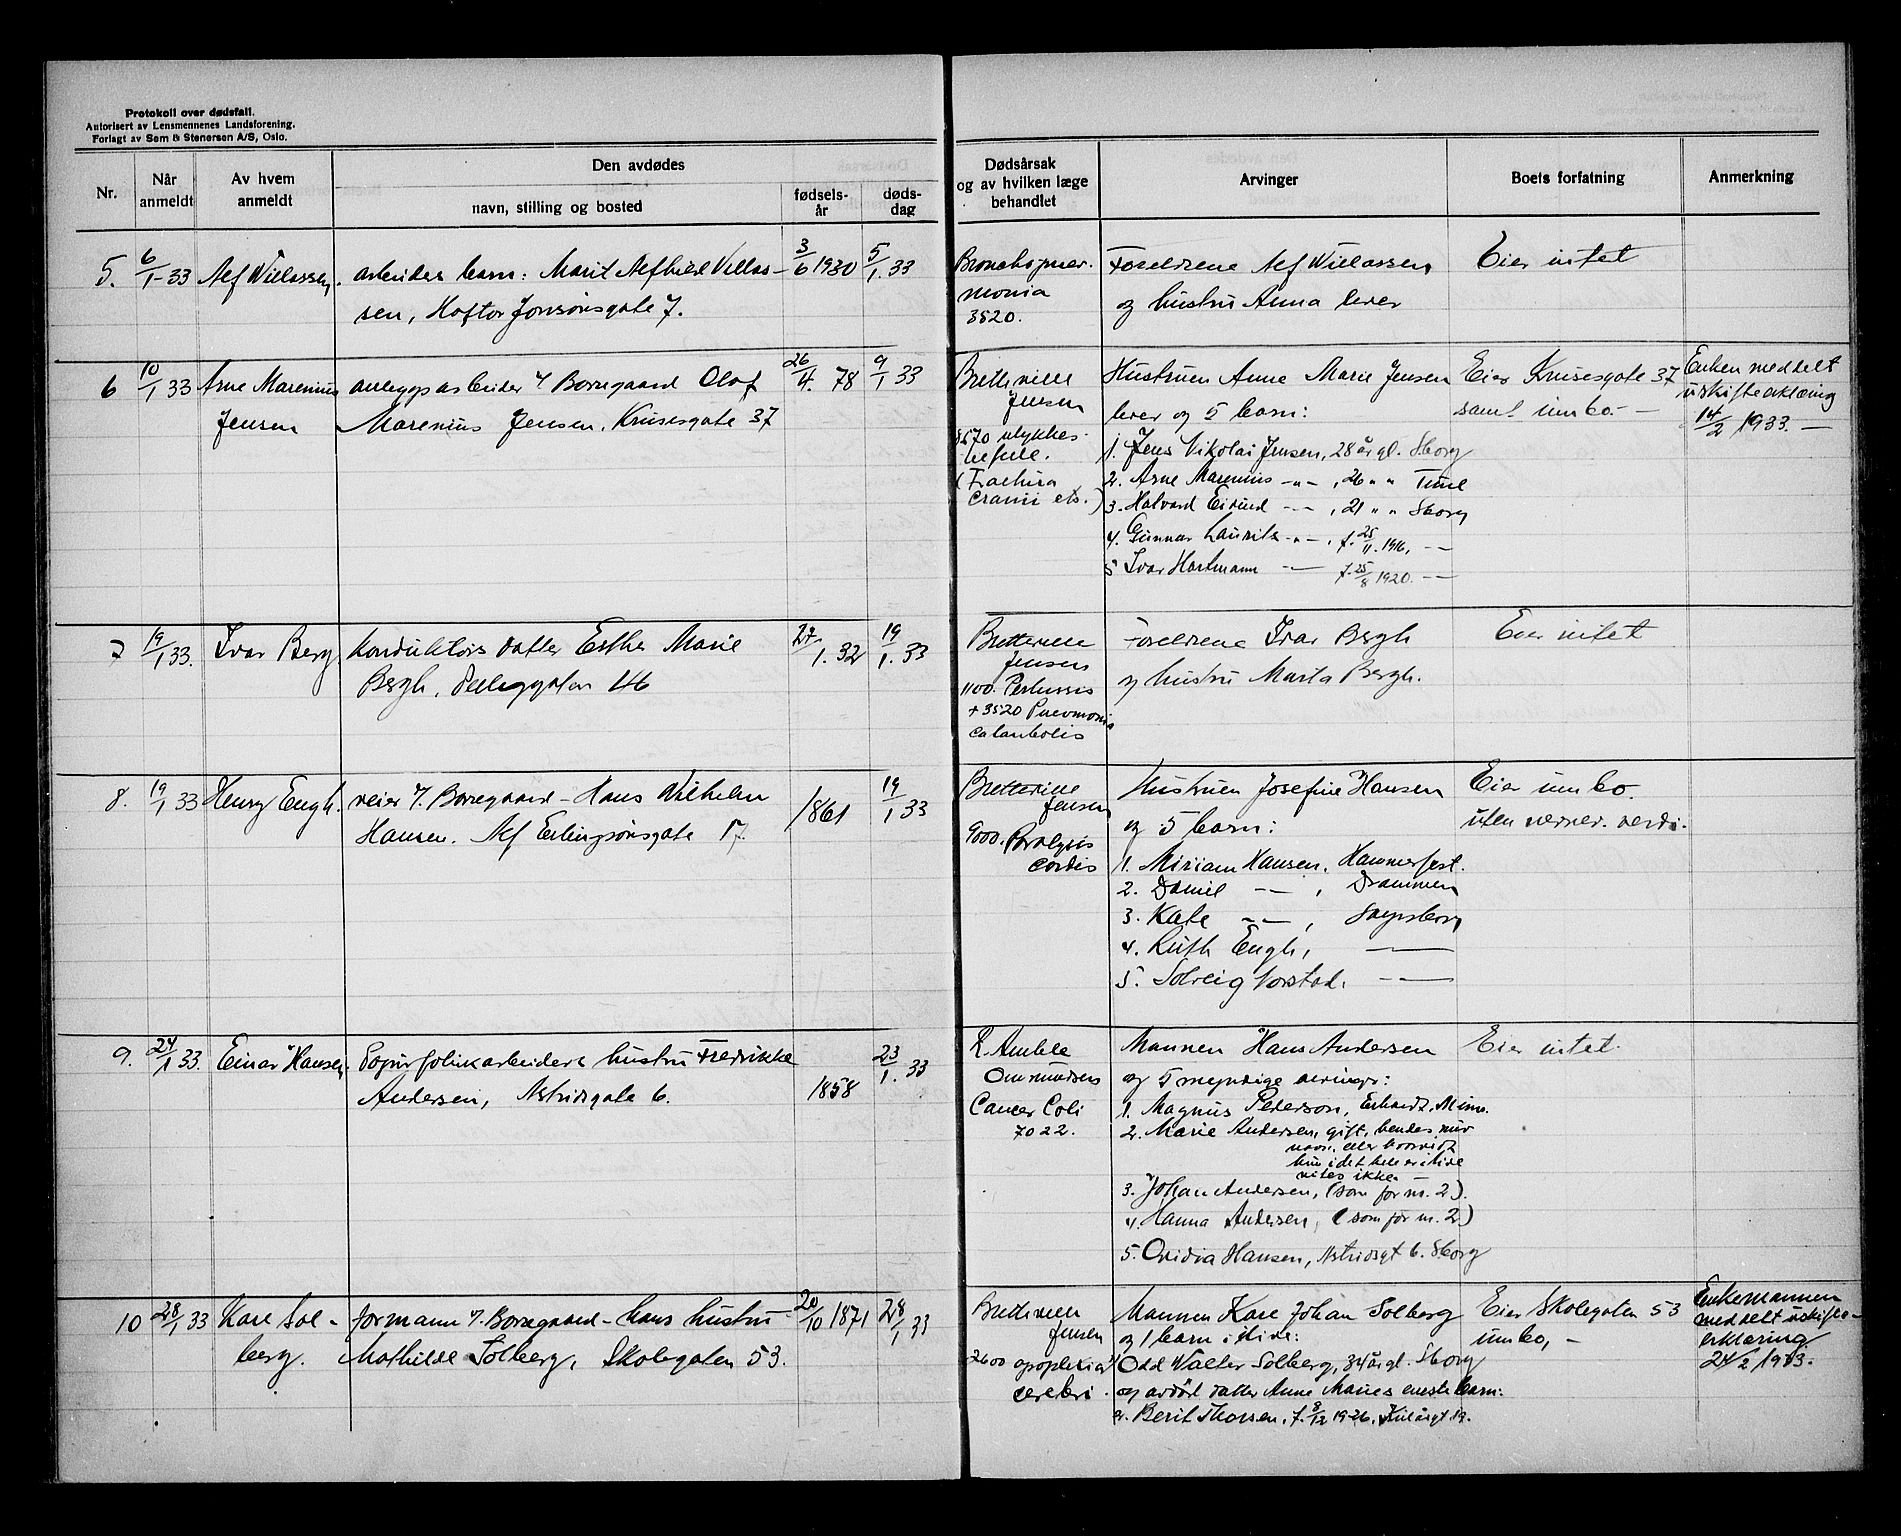 Protokoll over dødsfall.
Autorisert av Lensmennenes Landsforening.
Forlagt av Sem & Stenersen A/S, Oslo.
Nr.
Når anmeldt
Av hvem anmeldt
Den avdødes
navn, stilling og bosted
fødsels-år
døds-dag
Dødsårsak og av hvilken læge behandlet
Arvinger
Boets forfatning
Anmerkning
5. 6/1-33 Alf Willassen.
arbeider barn: Marit Alfhild Villas-
sen, Haftor Jonsønsgate 7.
3/6 1930 5/1.33
Bronchopnev-
monia
3520.
Foreldrene Alf Willassen
og hustru Anna lever
Eier intet
6 10/1 33 Arne Marenius
Jensen
anleggsarbeider v/ Borregaard Olaf
Marenius Jensen, Krusesgate 37
26/4. 78 9/1 33
Bretteville
Jensen
ulykkes-
(Fractura
cranii etc.)
Hustruen Anne Marie Jensen
lever og 5 barn:
1. Jens Nikolai Jensen, 28 år gl. Sborg
2. Arne Marenius -"- , 26 " " Tune
3. Halvard Eivind -"- , 21 " " Sborg
4. Gunnar Lauritz -"- , f. 25/11.1916, -"-
5 Ivar Hartmann -"- f. 25/8 1920. -"-
Eier Krusesgate 37
samt innbo. -
Enken meddelt
uskifteerklæring
14/2 1933. -
7 19/1 33. Ivar Berg
Konduktørs datter Esther Marie
Bergh, 146
27/1. 32 19/1. 33
Bretteville
Jensen
1100. Pertussis
+ 3520 Pnevmonia
catarrhalis
Foreldrene Ivar Bergh
og hustru Marta Bergh.
Eier intet
8. 19/1 33 Henry Engh.
veier v/ Borregaard - Hans Wilhelm
Hansen. Alf Erlingsønsgate 17.
1861 19/1 33
Bretteville
Jensen
9000. Paralysis
cordis
Hustruen Josefine Hansen
og 5 barn:
1. Miriam Hansen, Hammerfest.
2. Daniel -"- , Drammen
3. Kate -"- , Sarpsborg
4. Ruth Engh, -"-
5. Solveig Norstad. -"-
Eier innbo.
uten nevnev. verdi.
9. 24/1 33. Einar Hansen
Papirfabrikarbeiders hustru Fredrikke
Andersen, Astridsgate 6.
1858 23/1. 33
Omrundsen
Cancer Coli
7022.
Mannen Hans Andersen
og 5 myndige arvinger:
1. Magnus Pederson, Erhardt, Minn.
2. Marie Andersen, gift, hendes nuv.
navn, eller hvorvidt
hun i det hele er i live
vites ikke.
3. Johan Andersen, (som for nr. 2).
4. Hanna Andersen, (som for nr. 2)
5. Ovidia Hansen, Astridsgt 6. Sborg
Eier intet.
10 28/1 33 Kare Sol-
berg.
formann v/ Borregaard - hans hustru
Mathilde Solberg, Skolegaten 53.
20/10 1871 28/1 33
Bretteville
Jensen
2600 apoplexia
cerebri
Mannen Kare Johan Solberg
og 1 barn i live:
Odd Walter Solberg, 34 år gl. Sborg
og avdød datter Anne Maries eneste barn:
a. Berit Thorsen, f. 8/12 1926,
Eier Skolegaten 53
innbo, -
Enkemannen
meddelt uskifte-
erklæring
24/2 1933.